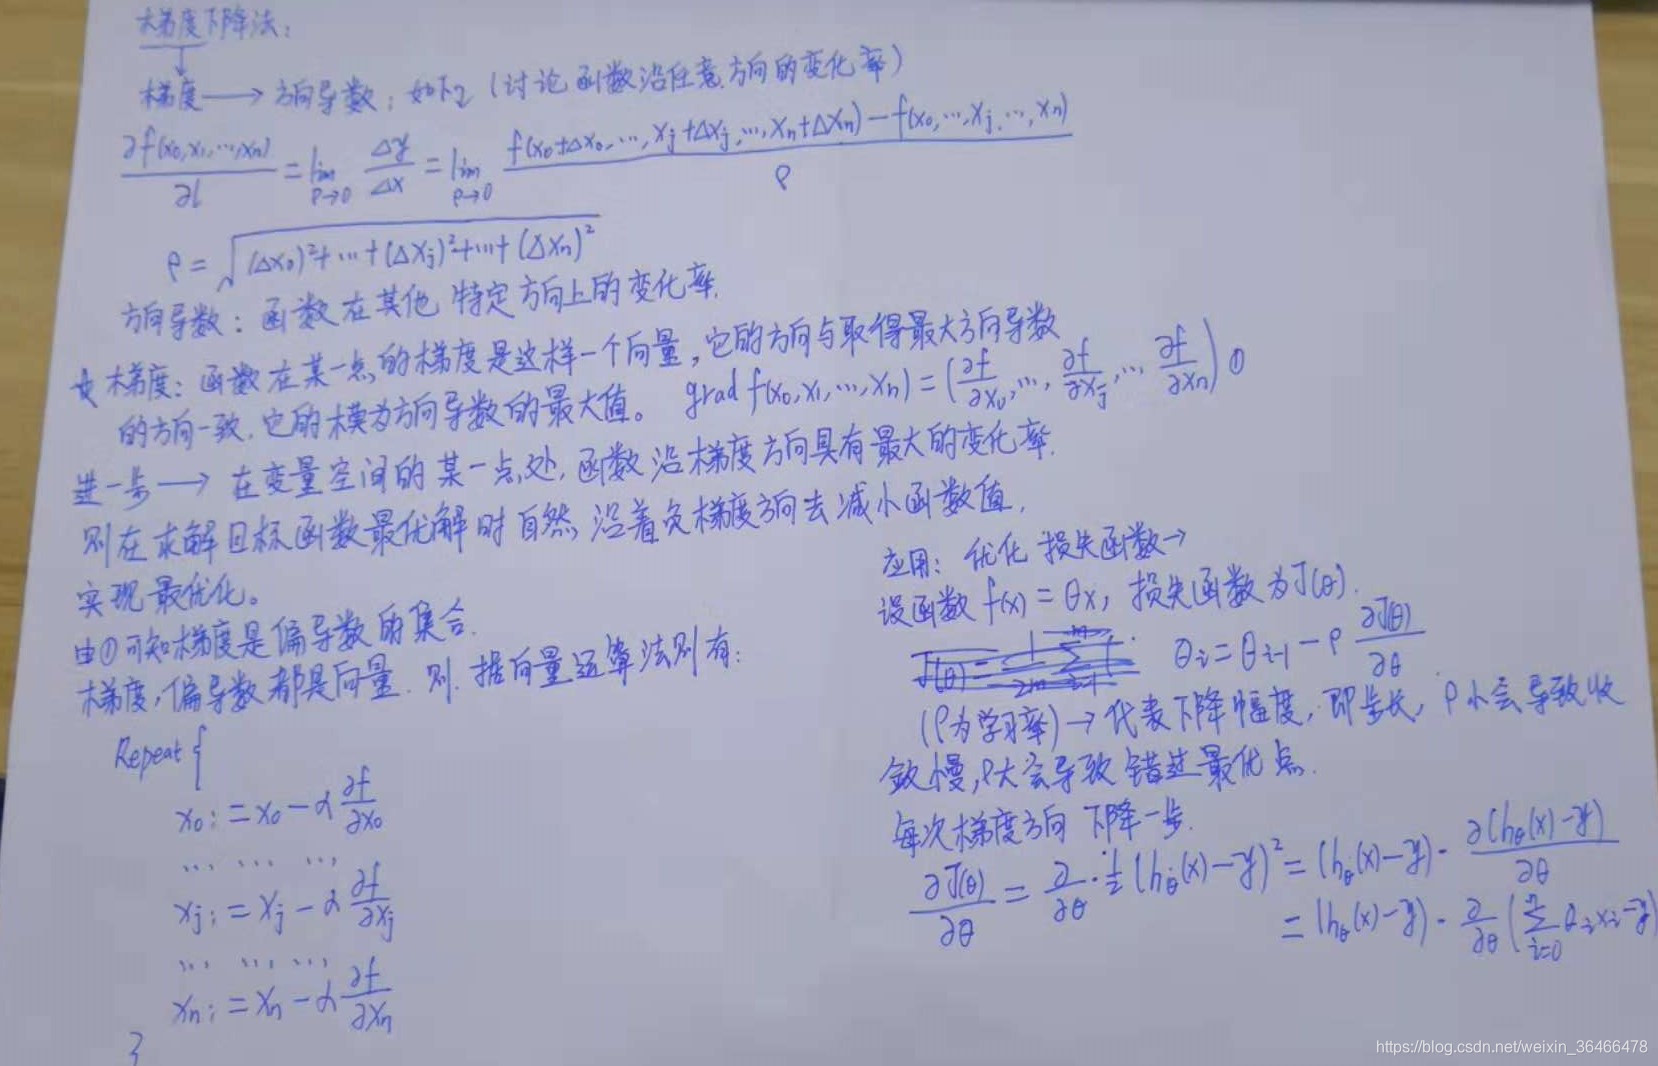 梯度下降法:
梯度 → 方向导数: 如下 (讨论函数沿任意方向的变化率)
∂f(x₀,x₁,…,xₙ)/∂l = lim ρ→0 Δy/Δx = lim ρ→0 [f(x₀+Δx₀,…,xⱼ+Δxⱼ,…,xₙ+Δxₙ)−f(x₀,…,xⱼ,…,xₙ)]/ρ
ρ = √((Δx₀)²+…+(Δxⱼ)²+…+(Δxₙ)²)
方向导数: 函数在其他特定方向上的变化率.
梯度: 函数在某一点的梯度是这样一个向量, 它的方向与取得最大方向导数
的方向一致, 它的模为方向导数的最大值。 grad f(x₀,x₁,…,xₙ)=(∂f/∂x₀,…,∂f/∂xⱼ,…∂f/∂xₙ) ①
进一步 → 在变量空间的某一点处, 函数沿梯度方向具有最大的变化率.
则在求解目标函数最优解时自然沿着负梯度方向去减小函数值,
实现最优化。
由①可知梯度是偏导数的集合.
梯度, 偏导数都是向量. 则. 据向量运算法则有:
Repeat {
x₀ := x₀ − α ∂f/∂x₀
… … …
xⱼ := xⱼ − α ∂f/∂xⱼ
… … …
xₙ := xₙ − α ∂f/∂xₙ
}
应用: 优化损失函数→
设函数 f(x) = θx, 损失函数为J(θ).
θᵢ = θᵢ₋₁ − ρ ∂J(θ)/∂θ
(ρ为学习率) → 代表下降幅度, 即步长, ρ小会导致收
敛慢, ρ大会导致错过最优点.
每次梯度方向下降一步.
∂J(θ)/∂θ = ∂/∂θ · ½ (hθ(x)−y)² = (hθ(x)−y) · ∂(hθ(x)−y)/∂θ
= (hθ(x)−y) · ∂/∂θ (Σᵢ₌₀ⁿ θᵢxᵢ−y)
https://blog.csdn.net/weixin_36466478